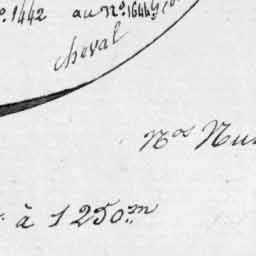 º. 1442 au nº. 1644
cheval
Nos Nu
à 1250.m